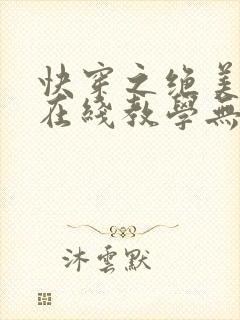 快穿之绝美
在线教學無
沐雲默